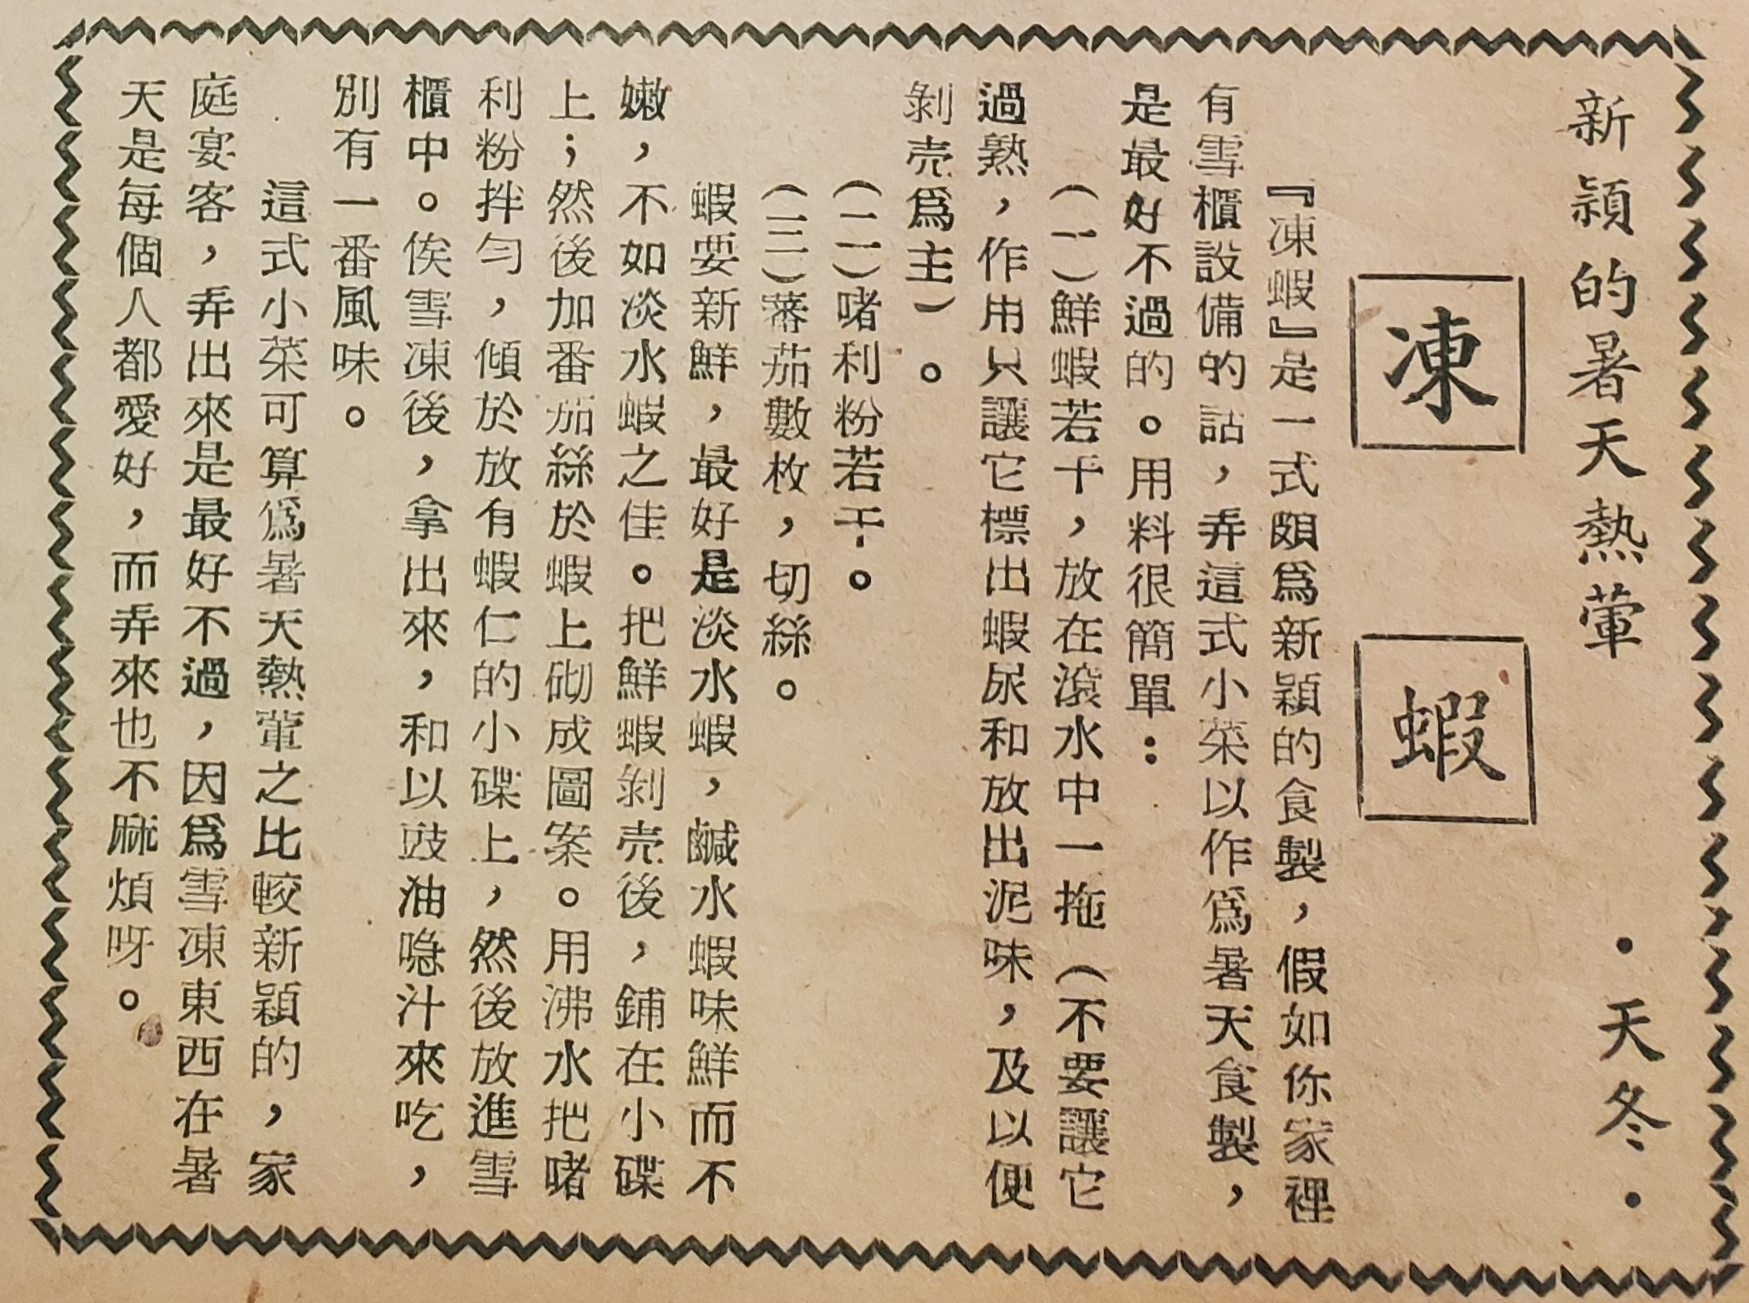 新穎的暑天熱葷
・天冬・
凍蝦
『凍蝦』是一式頗爲新穎的食製，假如你家裡
有雪櫃設備的話，弄這式小菜以作爲暑天食製，
是最好不過的。用料很簡單：
（一）鮮蝦若干，放在滾水中一拖（不要讓它
過熟，作用只讓它標出蝦尿和放出泥味，及以便
剝壳爲主）。
（二）啫利粉若干。
（三）蕃茄數枚，切絲。
蝦要新鮮，最好是淡水蝦，鹹水蝦味鮮而不
嫩，不如淡水蝦之佳。把鮮蝦剝壳後，鋪在小碟
上；然後加番茄絲於蝦上砌成圖案。用沸水把啫
利粉拌勻，傾於放有蝦仁的小碟上，然後放進雪
櫃中。俟雪凍後，拿出來，和以豉油喼汁來吃，
別有一番風味。
這式小菜可算爲暑天熱葷之比較新穎的，家
庭宴客，弄出來是最好不過，因爲雪凍東西在暑
天是每個人都愛好，而弄來也不麻煩呀。